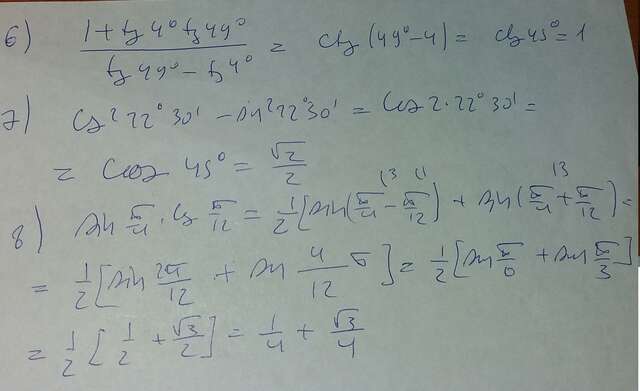 6) (1 + tg 4° tg 49°) / (tg 49° − tg 4°) = ctg (49° − 4) = ctg 45° = 1
7) cos² 22° 30' − sin² 22° 30' = cos 2 · 22° 30' =
= cos 45° = √2/2
8) sin π/4 · cos π/12 = 1/2 [sin (π/4 − π/12) + sin (π/4 + π/12) =
= 1/2 [sin 2π/12 + sin 4/12 π] = 1/2 [sin π/6 + sin π/3]
= 1/2 [1/2 + √3/2] = 1/4 + √3/4